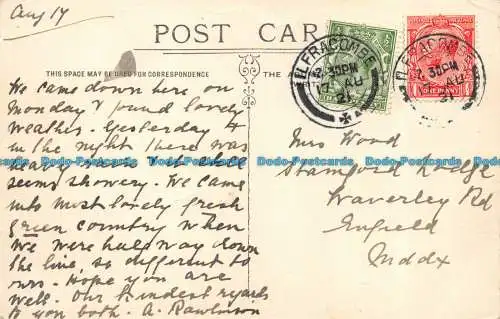 Aug 17
POST CARD
THIS SPACE MAY BE USED FOR CORRESPONDENCE
THE A
ILFRACOMBE
3 30PM
17 AU
21
ILFRACOMBE
3 30PM
AU
21
ONE PENNY
We came down here on
Monday & found lovely
weather. Yesterday &
in the night there was
heavy rain
seems showery. We came
into most lovely fresh
green country when
we were half way down
the line, so different to
ours. Hope you are
well. Our kindest regards
to you both. A. Rawlinson
Mrs Wood
Stamford Lodge
Waverley Rd
Enfield
Middx
Dodo-Postcards Dodo-Postcards Dodo-Postcards Dodo-Postcards